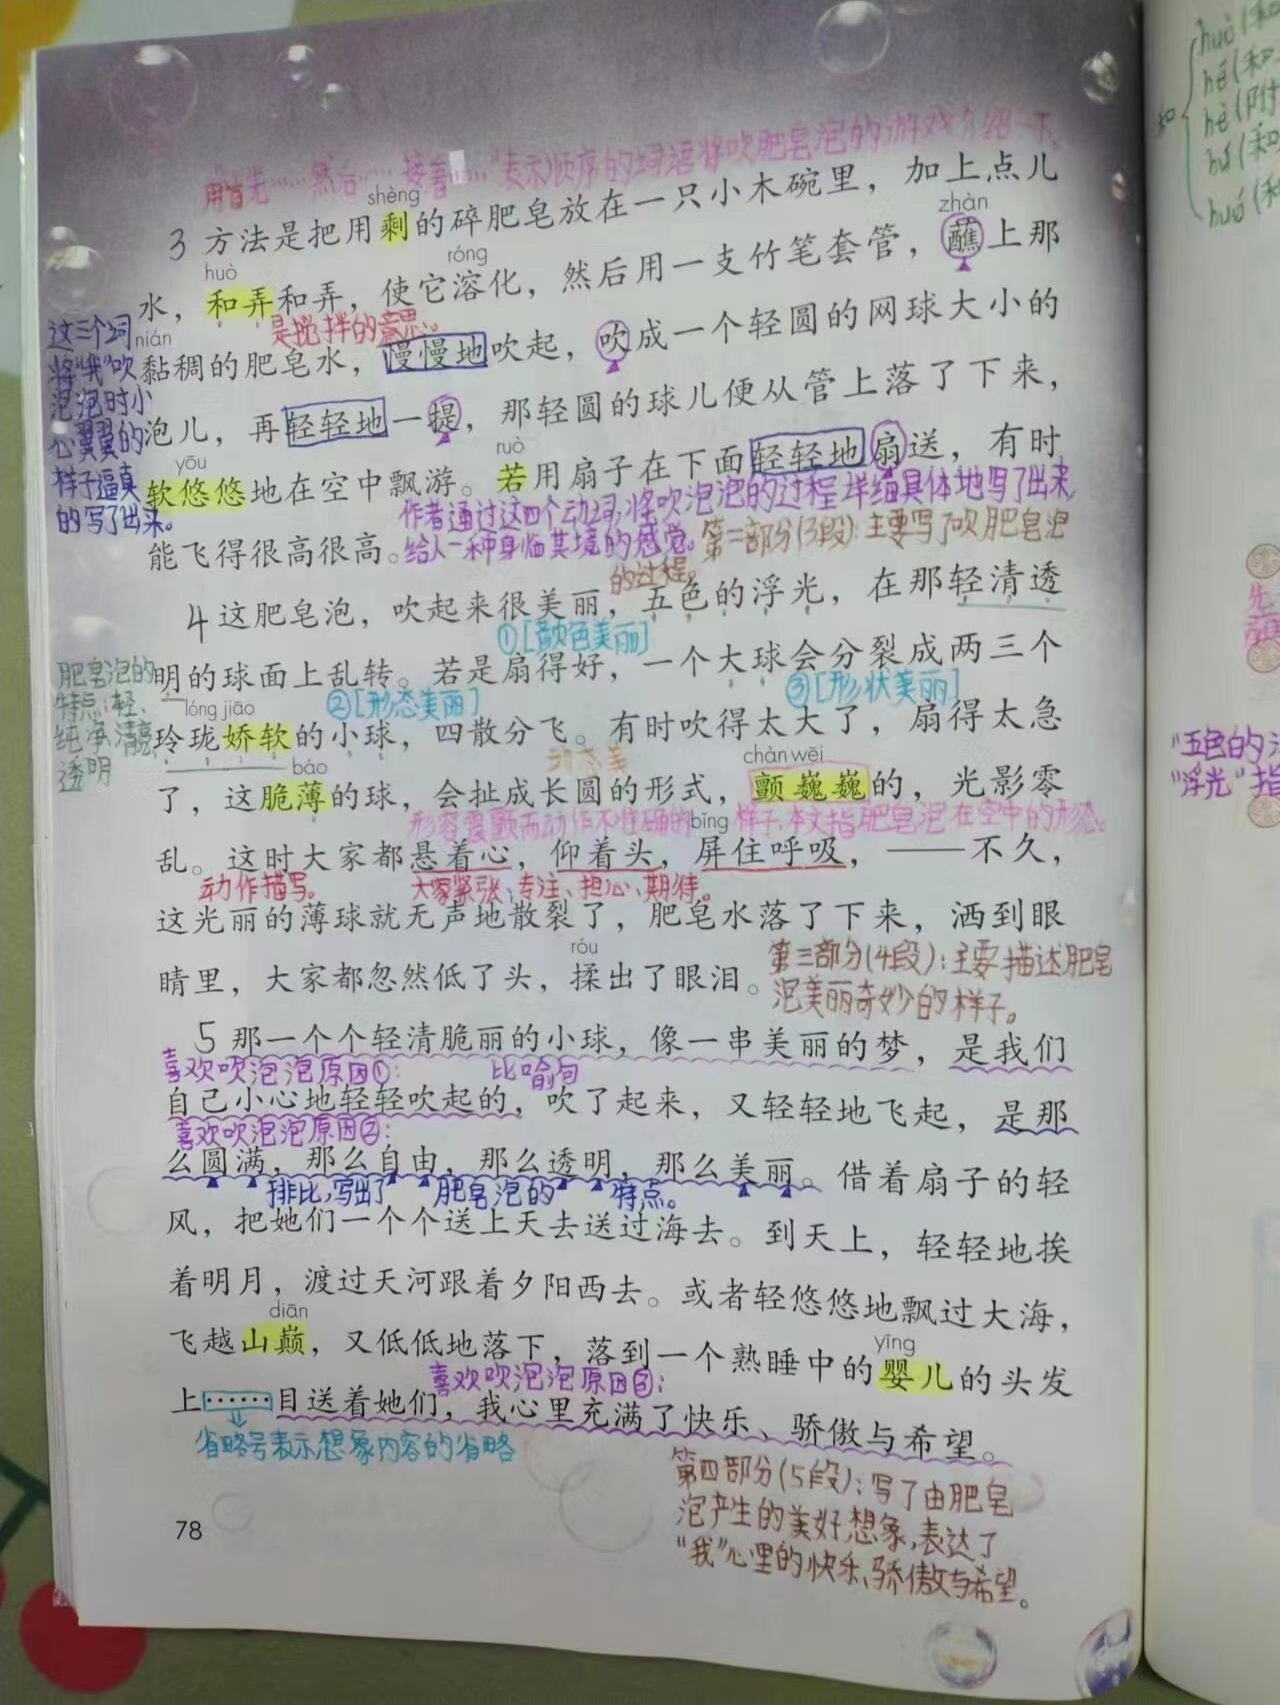 用首先……然后……接着……"表示顺序的词语将吹肥皂泡的游戏介绍一下。
shèng
3 方法是把用剩的碎肥皂放在一只小木碗里，加上点儿
huò róng zhàn
水，和弄和弄，使它溶化，然后用一支竹笔套管，蘸上那
是搅拌的意思。
nián
黏稠的肥皂水，慢慢地吹起，吹成一个轻圆的网球大小的
泡儿，再轻轻地一提，那轻圆的球儿便从管上落了下来，
yōu ruò
软悠悠地在空中飘游。若用扇子在下面轻轻地扇送，有时
这三个词
将"我"吹
泡泡时小
心翼翼的
样子逼真
的写了出来。
作者通过这四个动词，将吹泡泡的过程详细具体地写了出来，
能飞得很高很高。
给人一种身临其境的感觉。
第二部分(3段)：主要写了吹肥皂泡
的过程。
4 这肥皂泡，吹起来很美丽，五色的浮光，在那轻清透
①[颜色美丽]
明的球面上乱转。若是扇得好，一个大球会分裂成两三个
②[形态美丽] ③[形状美丽]
lóng jiāo
玲珑娇软的小球，四散分飞。有时吹得太大了，扇得太急
肥皂泡的
特点：轻、
纯净、清亮、
透明
动态美
báo chàn wēi
了，这脆薄的球，会扯成长圆的形式，颤巍巍的，光影零
样子，本文指肥皂泡在空中的形态。
bǐng
乱。这时大家都悬着心，仰着头，屏住呼吸，——不久，
动作描写。 大家紧张、专注、担心、期待。
这光丽的薄球就无声地散裂了，肥皂水落了下来，洒到眼
róu
睛里，大家都忽然低了头，揉出了眼泪。
第三部分(4段)：主要描述肥皂
泡美丽奇妙的样子。
5 那一个个轻清脆丽的小球，像一串美丽的梦，是我们
喜欢吹泡泡原因①： 比喻句
自己小心地轻轻吹起的，吹了起来，又轻轻地飞起，是那
喜欢吹泡泡原因②：
么圆满，那么自由，那么透明，那么美丽。借着扇子的轻
排比，写出了肥皂泡的特点。
风，把她们一个个送上天去送过海去。到天上，轻轻地挨
着明月，渡过天河跟着夕阳西去。或者轻悠悠地飘过大海，
diān yīng
飞越山巅，又低低地落下，落到一个熟睡中的婴儿的头发
喜欢吹泡泡原因③：
上……目送着她们，我心里充满了快乐、骄傲与希望。
省略号表示想象内容的省略
第四部分(5段)：写了由肥皂
泡产生的美好想象，表达了
"我"心里的快乐、骄傲与希望。
78
和
huò(和
hé(和
hè(附
hú(和
huó(和
先
"五色的浮
"浮光"指